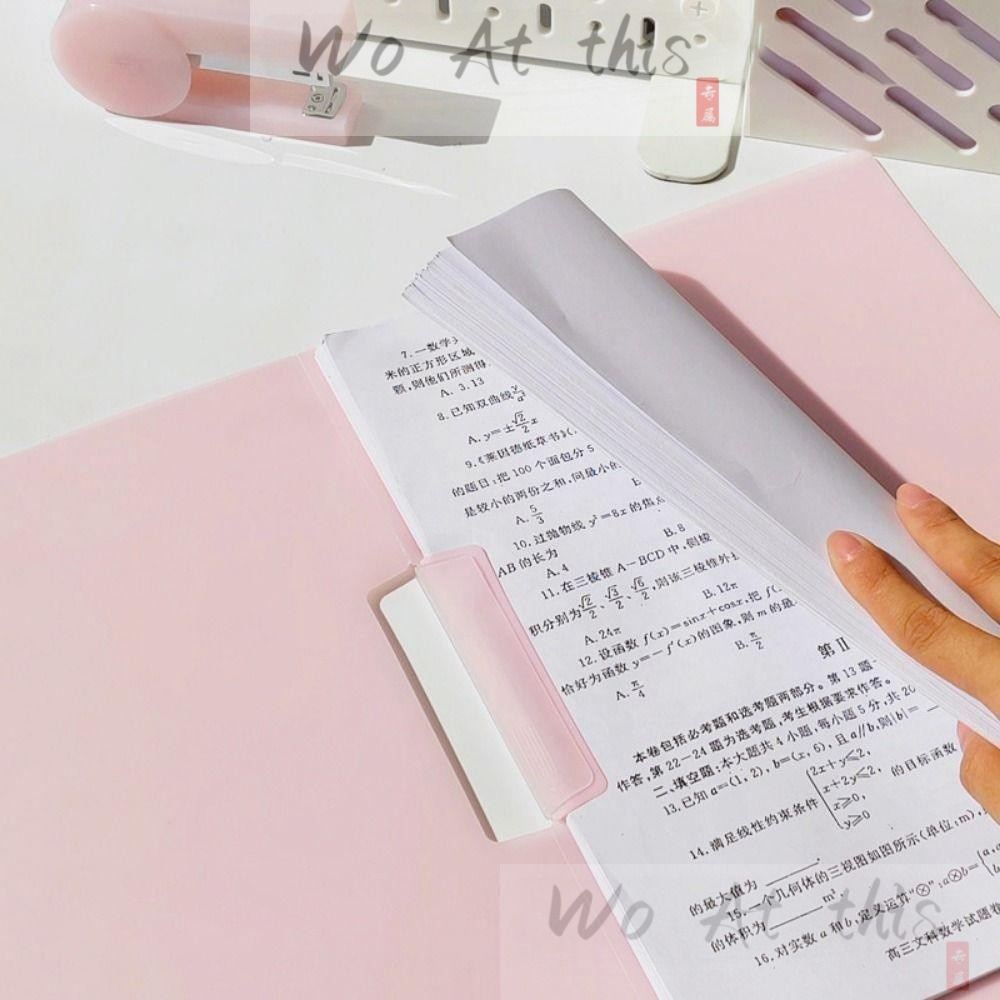 Wo At this
专属
7.一数学
米的正方形区域
颗,则他们所测得
A. 3.13
8.已知双曲线
A. y=±√2/2 x
9.《莱因德纸草书》(
的题目:把 100 个面包分 5
是较小的两份之和,问最小的
A. 5/3
10.过抛物线 y²=8x 的焦点
AB 的长为
A. 4
B. 8
11.在三棱锥 A-BCD 中,侧棱
积分别为√2/2、√3/2、√6/2,则该三棱锥外
A. 24π
B. 12π
12.设函数 f(x)=sinx+cosx,把 f(
恰好为函数 y=-f'(x)的图象,则 m 的最
A. π/4
B. π/2
第Ⅱ
本卷包括必考题和选考题两部分。第 13 题
作答,第 22-24 题为选考题,考生根据要求作答。
二、填空题:本大题共 4 小题,每小题 5 分,共 20
13.已知 a=(1, 2), b=(x, 6), 且 a∥b,则|b|=
14.满足线性约束条件{2x+y≤2, x+2y≤2, x≥0, y≥0 的目标函数
的最大值为
15.一个几何体的三视图如图所示(单位:m),
的体积为 m³.
16.对实数 a 和 b,定义运算"⊗":a⊗b={a,
高三文科数学试题卷
Wo At this
专属